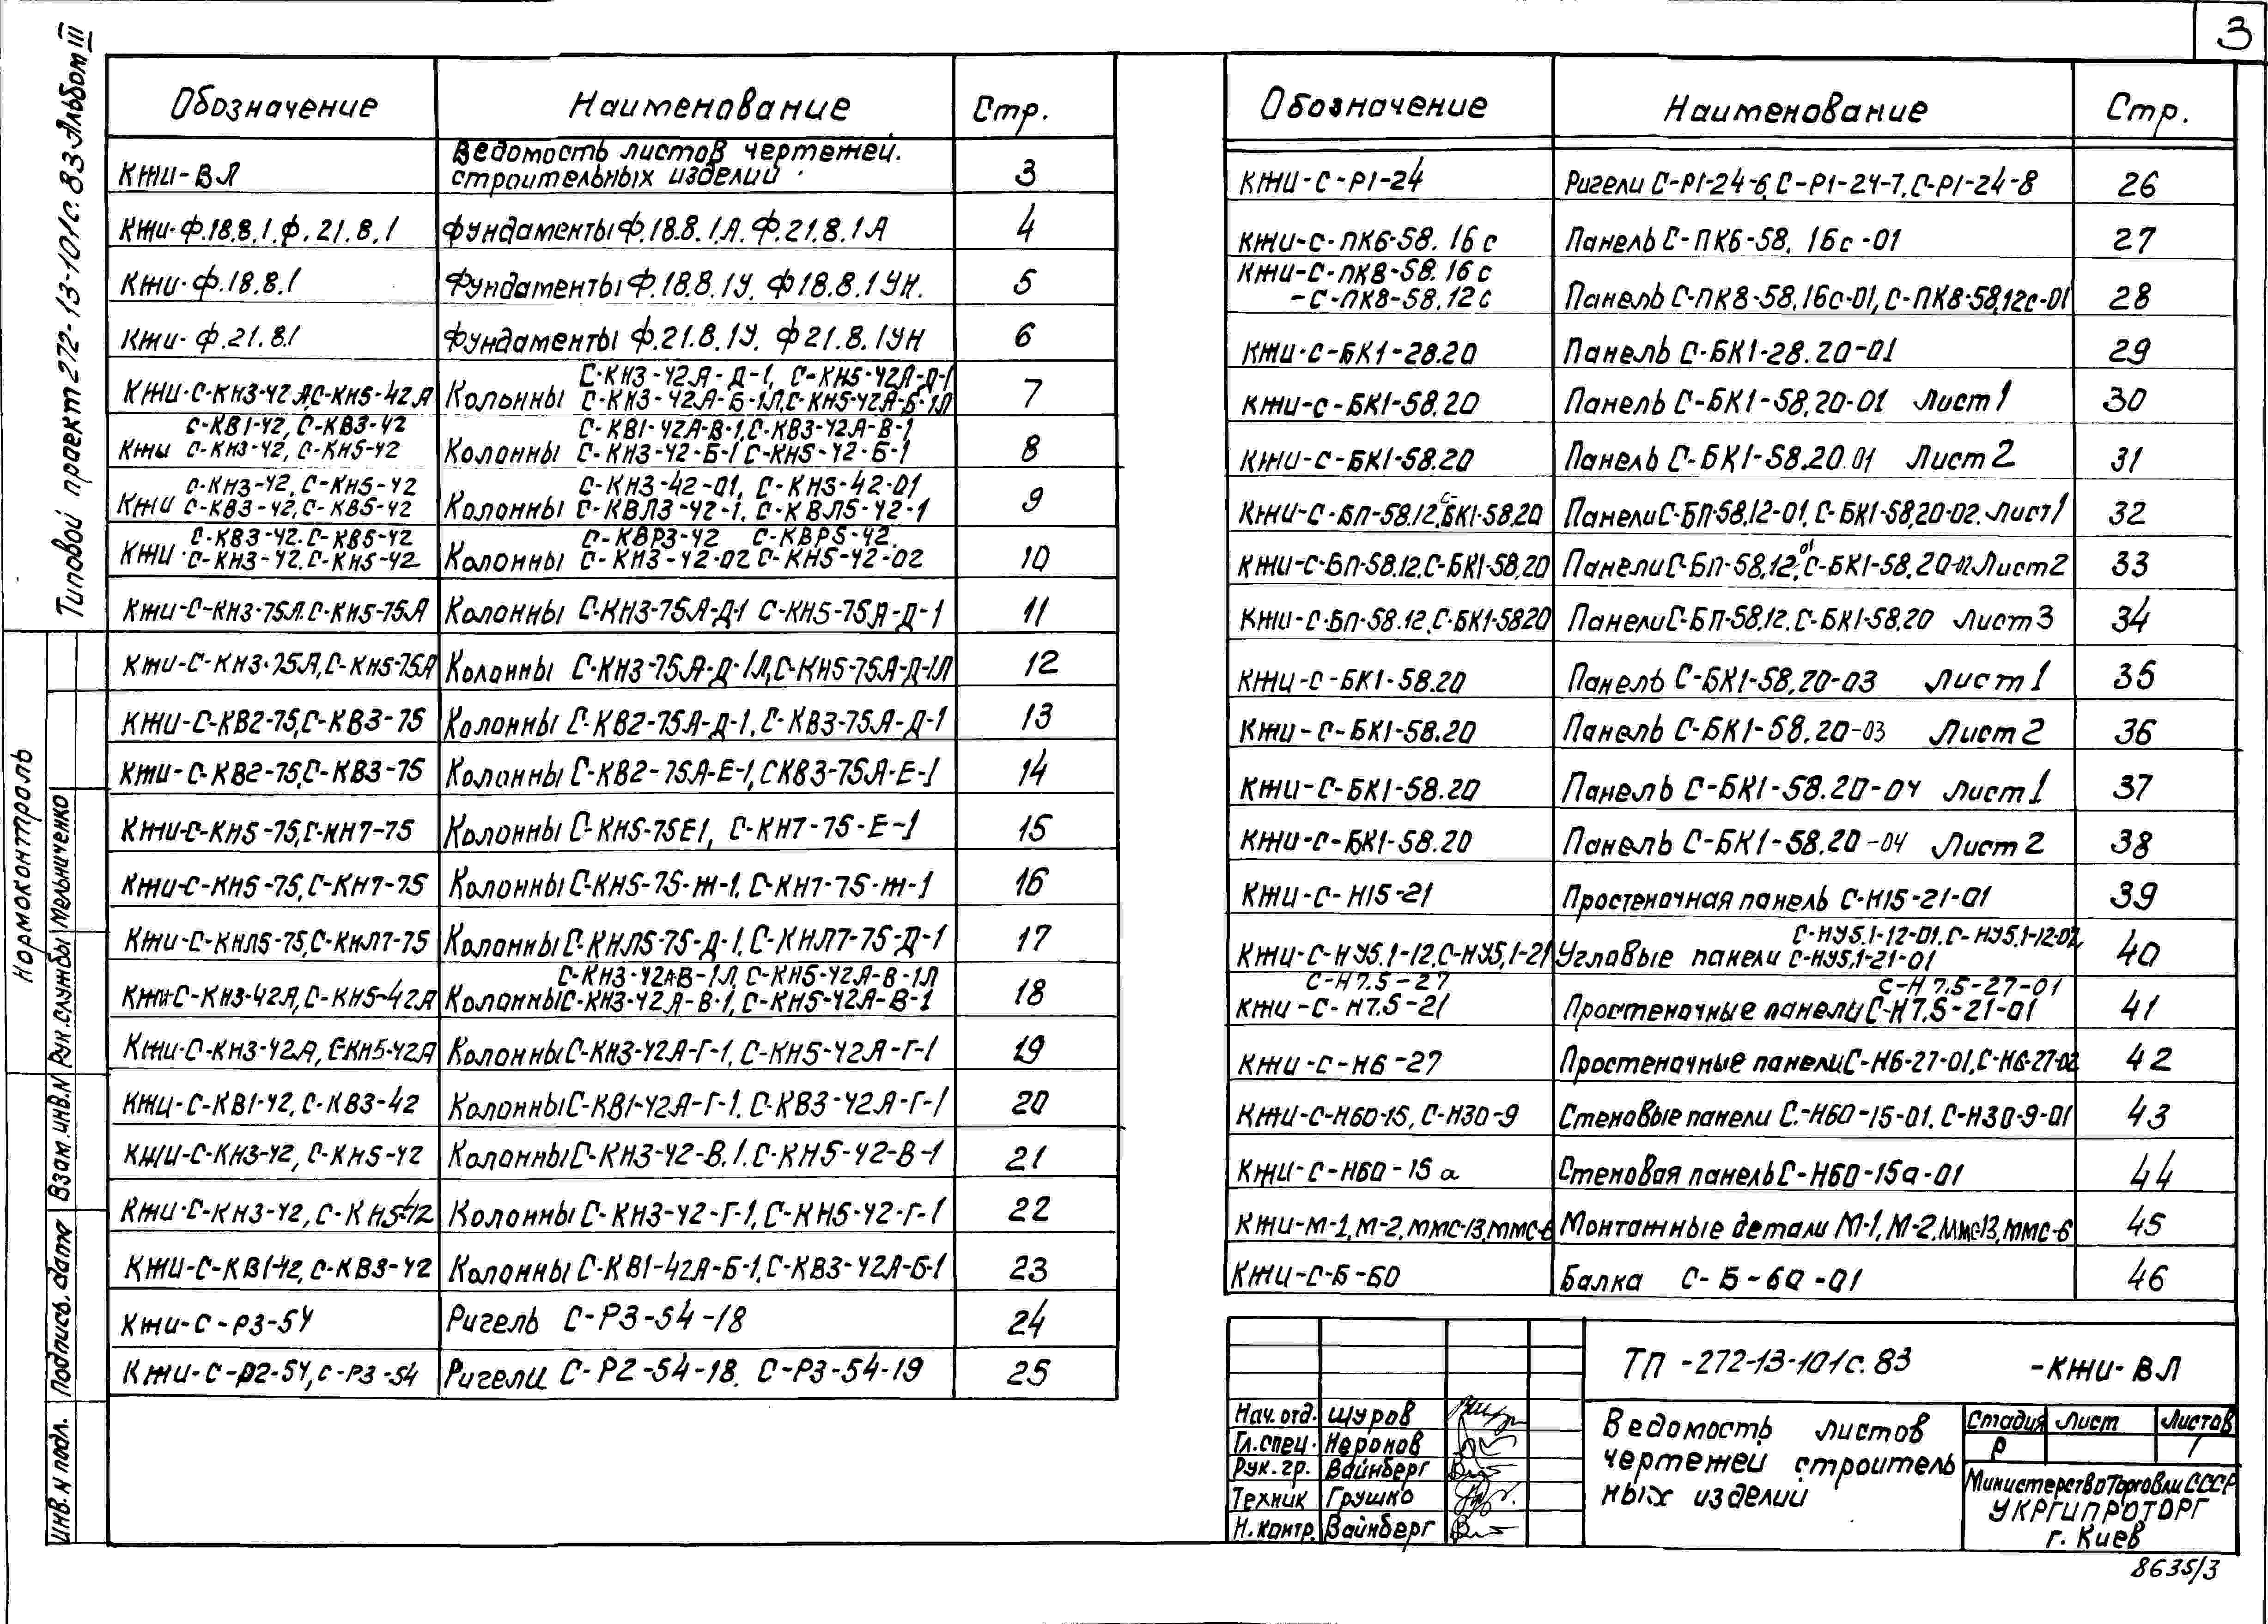 3
Типовой проект 272-13-101с.83 Альбом III
Обозначение Наименование Стр.
КЖИ-ВЛ Ведомость листов чертежей. строительных изделий 3
КЖИ-Ф.18.8.1.Ф.21.8.1 Фундаменты Ф.18.8.1.А. Ф.21.8.1А 4
КЖИ-Ф.18.8.1 Фундаменты Ф.18.8.1У. Ф18.8.1УН. 5
КЖИ-Ф.21.8.1 Фундаменты Ф.21.8.1У. Ф21.8.1УН 6
КЖИ-С-КН3-42А,С-КН5-42А Колонны С-КН3-42А-Д-1, С-КН5-42А-Д-1 С-КН3-42А-Б-1Л,С-КН5-42А-Б-1Л 7
КЖИ С-КВ1-42, С-КВ3-42 С-КН3-42, С-КН5-42 Колонны С-КВ1-42А-В-1,С-КВ3-42А-В-1 С-КН3-42-Б-1 С-КН5-42-Б-1 8
КЖИ С-КН3-42, С-КН5-42 С-КВ3-42, С-КВ5-42 Колонны С-КН3-42-01, С-КН5-42-01 С-КВЛ3-42-1. С-КВЛ5-42-1 9
КЖИ С-КВ3-42. С-КВ5-42 С-КН3-42. С-КН5-42 Колонны С-КВР3-42 С-КВР5-42. С-КН3-42-02 С-КН5-42-02 10
КЖИ-С-КН3-75А.С-КН5-75А Колонны С-КН3-75А-Д-1 С-КН5-75А-Д-1 11
КЖИ-С-КН3-75А,С-КН5-75А Колонны С-КН3-75А-Д-1Л,С-КН5-75А-Д-1Л 12
КЖИ-С-КВ2-75,С-КВ3-75 Колонны С-КВ2-75А-Д-1. С-КВ3-75А-Д-1 13
КЖИ-С-КВ2-75,С-КВ3-75 Колонны С-КВ2-75А-Е-1,СКВ3-75А-Е-1 14
КЖИ-С-КН5-75,С-КН7-75 Колонны С-КН5-75Е1, С-КН7-75-Е-1 15
КЖИ-С-КН5-75,С-КН7-75 Колонны С-КН5-75-Ж-1. С-КН7-75-Ж-1 16
КЖИ-С-КНЛ5-75,С-КНЛ7-75 Колонны С-КНЛ5-75-Д-1. С-КНЛ7-75-Д-1 17
КЖИ-С-КН3-42А,С-КН5-42А Колонны С-КН3-42А-В-1Л, С-КН5-42А-В-1Л С-КН3-42А-В-1, С-КН5-42А-В-1 18
КЖИ-С-КН3-42А, С-КН5-42А Колонны С-КН3-42А-Г-1. С-КН5-42А-Г-1 19
КЖИ-С-КВ1-42, С-КВ3-42 Колонны С-КВ1-42А-Г-1. С-КВ3-42А-Г-1 20
КЖИ-С-КН3-42, С-КН5-42 Колонны С-КН3-42-В.1. С-КН5-42-В-1 21
КЖИ-С-КН3-42, С-КН5-42 Колонны С-КН3-42-Г-1, С-КН5-42-Г-1 22
КЖИ-С-КВ1-42, С-КВ3-42 Колонны С-КВ1-42А-Б-1, С-КВ3-42А-Б-1 23
КЖИ-С-Р3-54 Ригель С-Р3-54-18 24
КЖИ-С-Р2-54, С-Р3-54 Ригели С-Р2-54-18. С-Р3-54-19 25
Обозначение Наименование Стр.
КЖИ-С-Р1-24 Ригели С-Р1-24-6, С-Р1-24-7, С-Р1-24-8 26
КЖИ-С-ПК6-58.16с Панель С-ПК6-58.16с-01 27
КЖИ-С-ПК8-58.16с -С-ПК8-58.12с Панель С-ПК8-58.16с-01, С-ПК8-58.12с-01 28
КЖИ-С-БК1-28.20 Панель С-БК1-28.20-01 29
КЖИ-С-БК1-58.20 Панель С-БК1-58.20-01 Лист 1 30
КЖИ-С-БК1-58.20 Панель С-БК1-58.20.01 Лист 2 31
КЖИ-С-БП-58.12,С-БК1-58.20 Панели С-БП-58.12-01, С-БК1-58.20-02. Лист 1 32
КЖИ-С-БП-58.12.С-БК1-58.20 Панели С-БП-58.12-01, С-БК1-58.20-02 Лист 2 33
КЖИ-С-БП-58.12,С-БК1-5820 Панели С-БП-58.12. С-БК1-58.20 Лист 3 34
КЖИ-С-БК1-58.20 Панель С-БК1-58.20-03 Лист 1 35
КЖИ-С-БК1-58.20 Панель С-БК1-58.20-03 Лист 2 36
КЖИ-С-БК1-58.20 Панель С-БК1-58.20-04 Лист 1 37
КЖИ-С-БК1-58.20 Панель С-БК1-58.20-04 Лист 2 38
КЖИ-С-Н15-21 Простеночная панель С-Н15-21-01 39
КЖИ-С-НУ5.1-12.С-НУ5,1-21 Угловые панели С-НУ5.1-12-01. С-НУ5.1-12-02, С-НУ5,1-21-01 40
КЖИ-С-Н7.5-21 С-Н7.5-27 Простеночные панели С-Н7.5-27-01 С-Н7.5-21-01 41
КЖИ-С-Н6-27 Простеночные панели С-Н6-27-01, С-Н6-27-02 42
КЖИ-С-Н60-15, С-Н30-9 Стеновые панели С-Н60-15-01. С-Н30-9-01 43
КЖИ-С-Н60-15а Стеновая панель С-Н60-15а-01 44
КЖИ-М-1, М-2, ММС-13, ММС-6 Монтажные детали М-1, М-2, ММС-13, ММС-6 45
КЖИ-С-Б-60 Балка С-Б-60-01 46
ТП -272-13-101с.83 -КЖИ-ВЛ
Нач.отд. Щуров
Гл.спец. Неронов
Рук.гр. Вайнберг
Техник Грушко
Н.контр. Вайнберг
Ведомость листов
чертежей строитель
ных изделий
Стадия Лист Листов
Р 1
Министерство Торговли СССР
УКРГИПРОТОРГ
г. Киев
8635/3
Нормоконтроль
Рук.службы Мельниченко
Взам.инв.N
Подпись, дата
Инв.N подл.